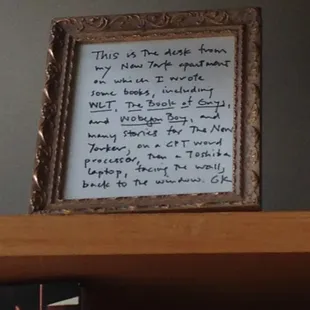 This is the desk from
my New York apartment
on which I wrote
some books, including
WLT, The Book of Guys,
and Wobegon Boy, and
many stories for The New
Yorker, on a CPT word
processor, then a Toshiba
laptop, facing the wall,
back to the window. GK